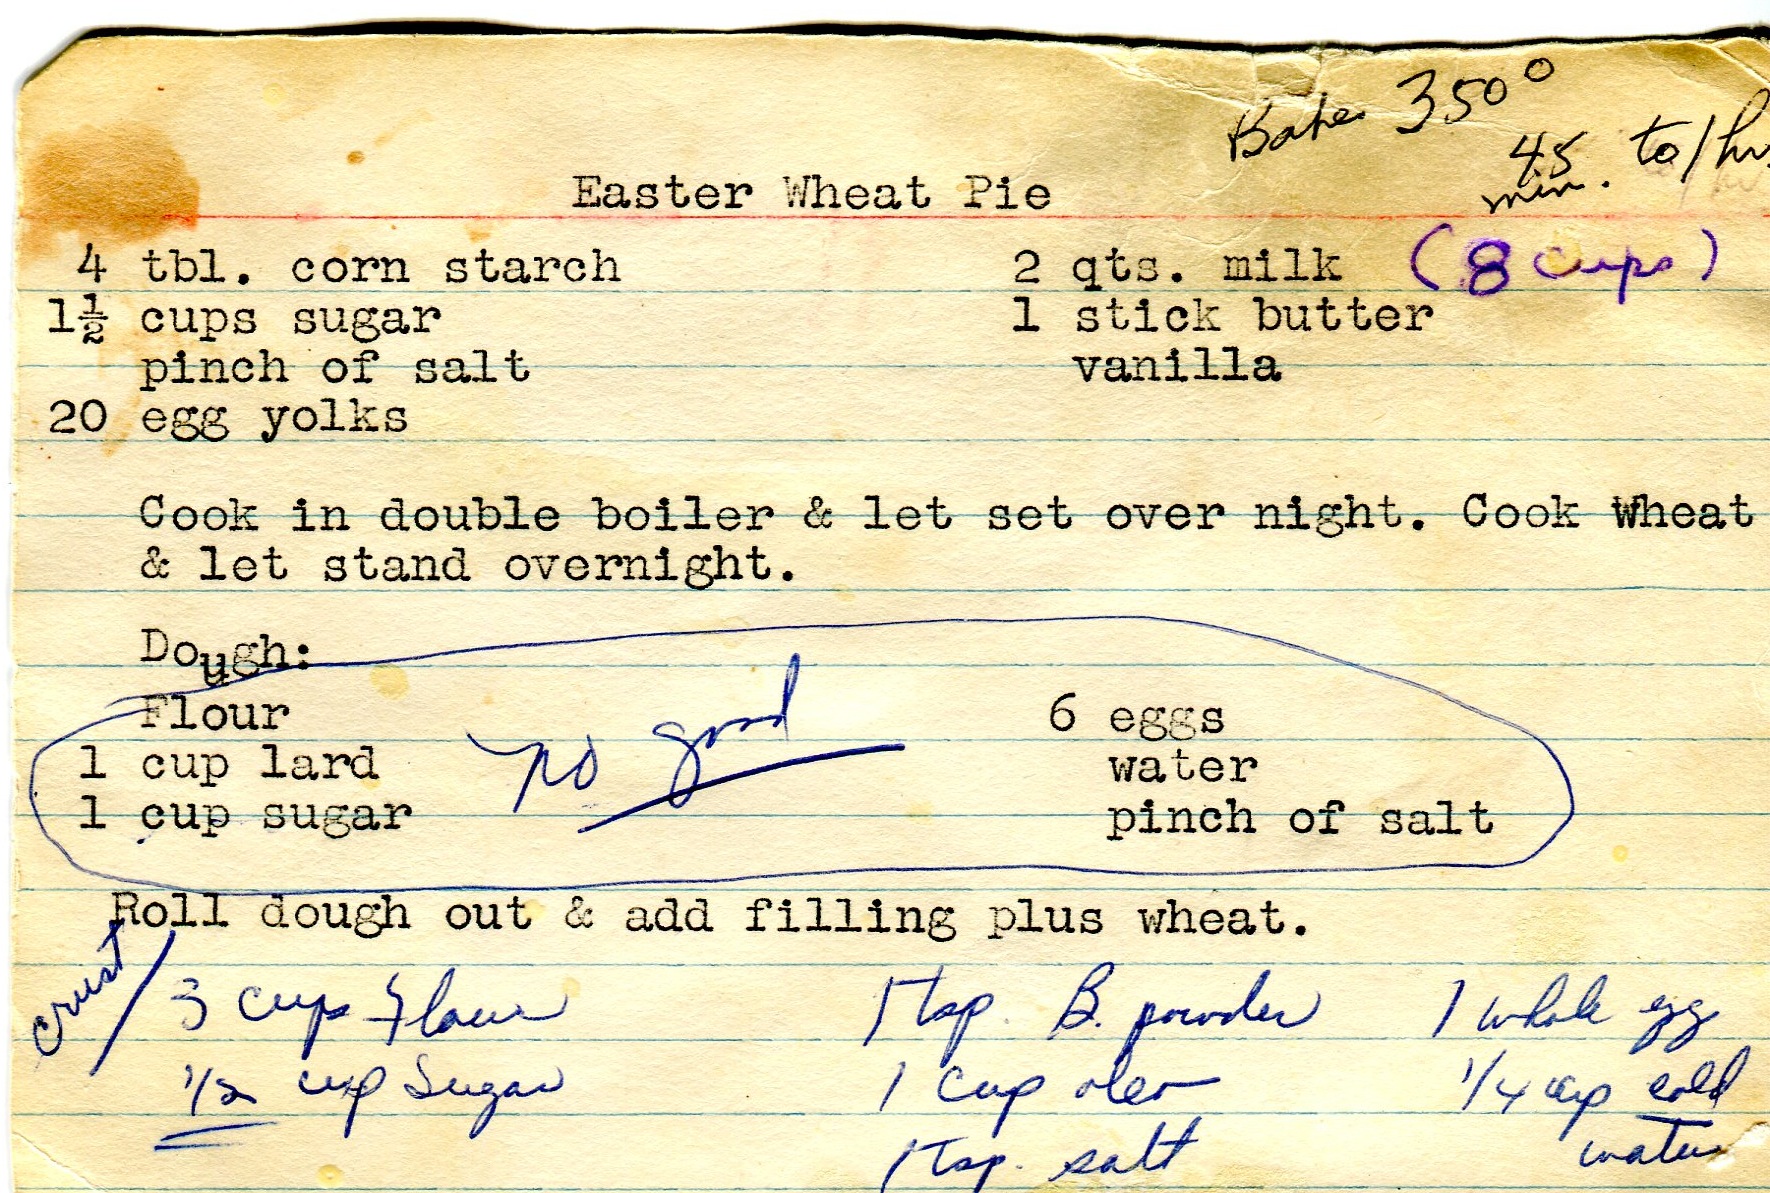 Bake 350°
45 min. to 1 hr.
Easter Wheat Pie
4 tbl. corn starch 2 qts. milk (8 cups)
1½ cups sugar 1 stick butter
pinch of salt vanilla
20 egg yolks
Cook in double boiler & let set over night. Cook Wheat
& let stand overnight.
Dough:
Flour 6 eggs
1 cup lard water
1 cup sugar pinch of salt
no good
Roll dough out & add filling plus wheat.
crust/ 3 cups Flour 1 tsp. B. powder 1 whole egg
1/2 cup Sugar 1 cup oleo 1/4 cup cold
1 tsp. salt water